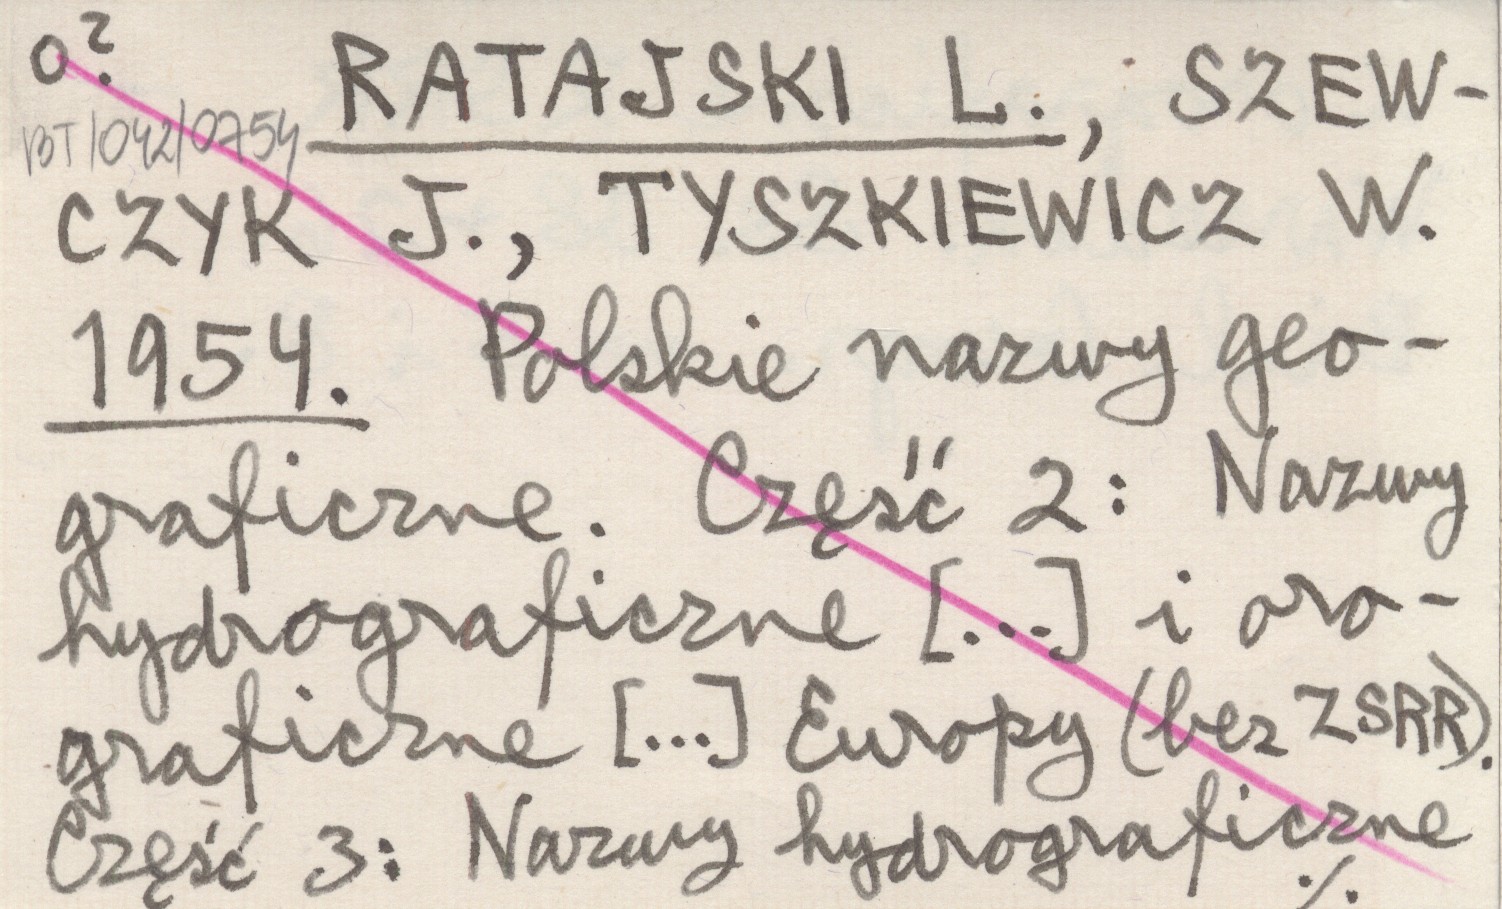 o?
RATAJSKI L., SZEW-
BT/042/0754
CZYK J., TYSZKIEWICZ W.
1954. Polskie nazwy geo-
graficzne. Część 2: Nazwy
hydrograficzne [...] i oro-
graficzne [...] Europy (bez ZSRR).
Część 3: Nazwy hydrograficzne
./.